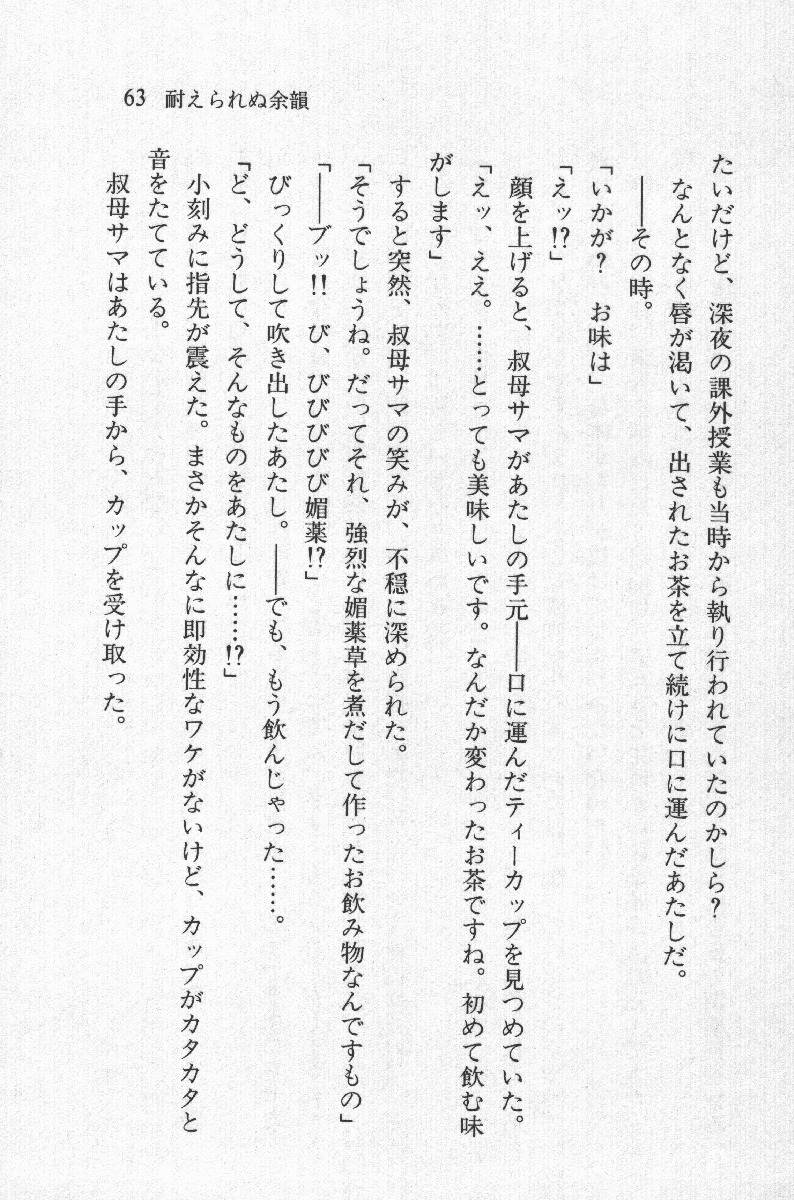 63 耐えられぬ余韻
たいだけど、深夜の課外授業も当時から執り行われていたのかしら?
なんとなく唇が渇いて、出されたお茶を立て続けに口に運んだあたしだ。
――その時。
「いかが? お味は」
「えッ!?」
顔を上げると、叔母サマがあたしの手元――口に運んだティーカップを見つめていた。
「えッ、ええ。……とっても美味しいです。なんだか変わったお茶ですね。初めて飲む味
がします」
すると突然、叔母サマの笑みが、不穏に深められた。
「そうでしょうね。だってそれ、強烈な媚薬草を煮だして作ったお飲み物なんですもの」
「――ブッ!! び、びびびびび媚薬!?」
びっくりして吹き出したあたし。――でも、もう飲んじゃった……。
「ど、どうして、そんなものをあたしに……!?」
小刻みに指先が震えた。まさかそんなに即効性なワケがないけど、カップがカタカタと
音をたてている。
叔母サマはあたしの手から、カップを受け取った。